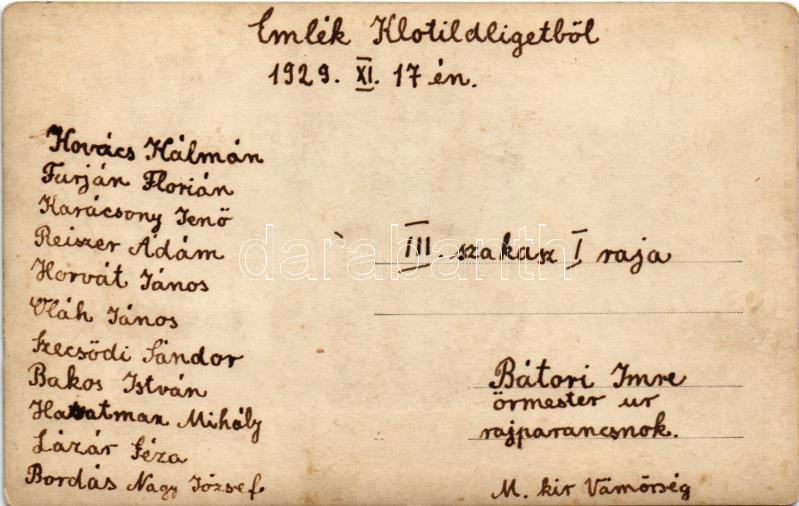 Emlék Klotildligetből
1929. XI. 17 én.
Kovács Kálmán
Furján Florián
Karácsony Jenő
Reiszer Ádám
Horvát János
Oláh János
Szecsődi Sándor
Bakos István
Mihály
Lázár Géza
Bordás Nagy József
III. szakasz I raja
Bátori Imre
őrmester ur
rajparancsnok.
M. kir Vámőrség
darabanth